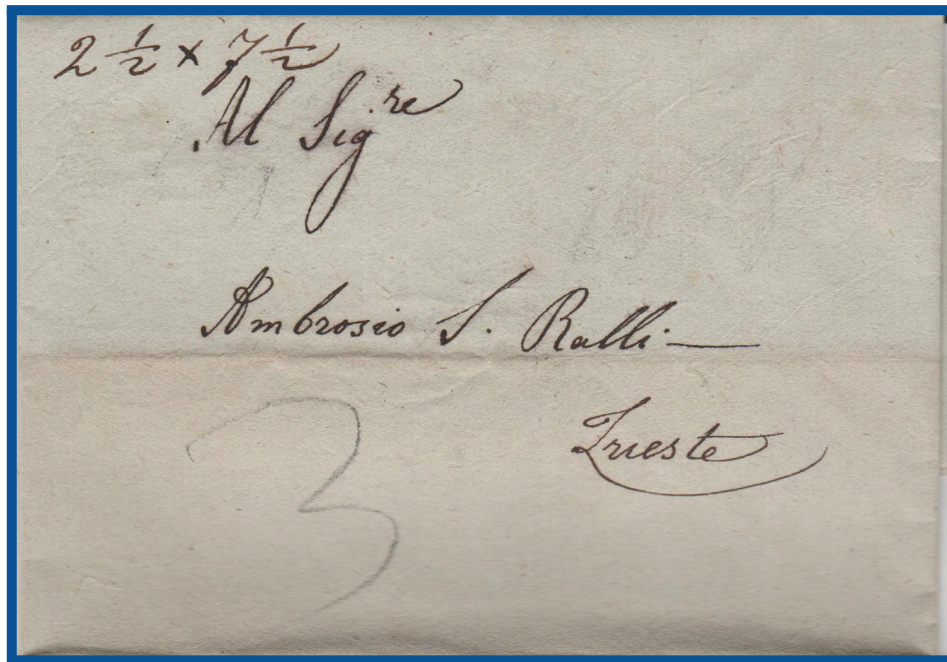 2 ½ × 7 ½
Al Sigre
Ambrosio S. Ralli —
Trieste
3